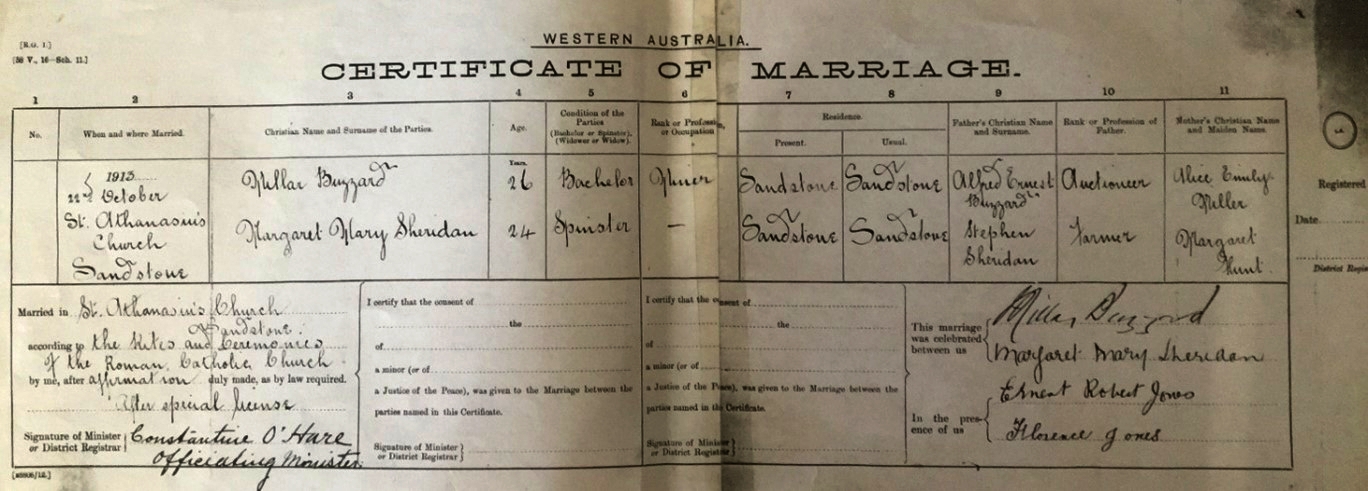 [R.G. 1.]
[58 V., 16—Sch. 11.]
WESTERN AUSTRALIA.
CERTIFICATE OF MARRIAGE.
1 2 3 4 5 6 7 8 9 10 11
No. When and where Married. Christian Name and Surname of the Parties. Age. Condition of the Parties (Bachelor or Spinster), (Widower or Widow). Rank or Profession, or Occupation Residence. Present. Usual. Father's Christian Name and Surname. Rank or Profession of Father. Mother's Christian Name and Maiden Name.
1913
22nd October
St. Athanasius's
Church
Sandstone
Years.
Millar Buzzard 26 Bachelor Miner Sandstone Sandstone Alfred Ernest Buzzard Auctioneer Alice Emily Miller
Margaret Mary Sheridan 24 Spinster — Sandstone Sandstone Stephen Sheridan Farmer Margaret Hunt
Married in St. Athanasius's Church
Sandstone.
according to the Rites and Ceremonies
of the Roman Catholic Church
by me, after affirmation duly made, as by law required.
After special license
Signature of Minister or District Registrar Constantine O'Hare
Officiating Minister.
I certify that the consent of
the
of
a minor (or of
a Justice of the Peace), was given to the Marriage between the
parties named in this Certificate.
Signature of Minister
or District Registrar
I certify that the consent of
the
of
a minor (or of
a Justice of the Peace), was given to the Marriage between the
parties named in the Certificate.
Signature of Minister
or District Registrar
This marriage
was celebrated
between us
Millar Buzzard
Margaret Mary Sheridan
In the pres-
ence of us
Ernest Robert Jones
Florence Jones
Registered
Date
District Regis